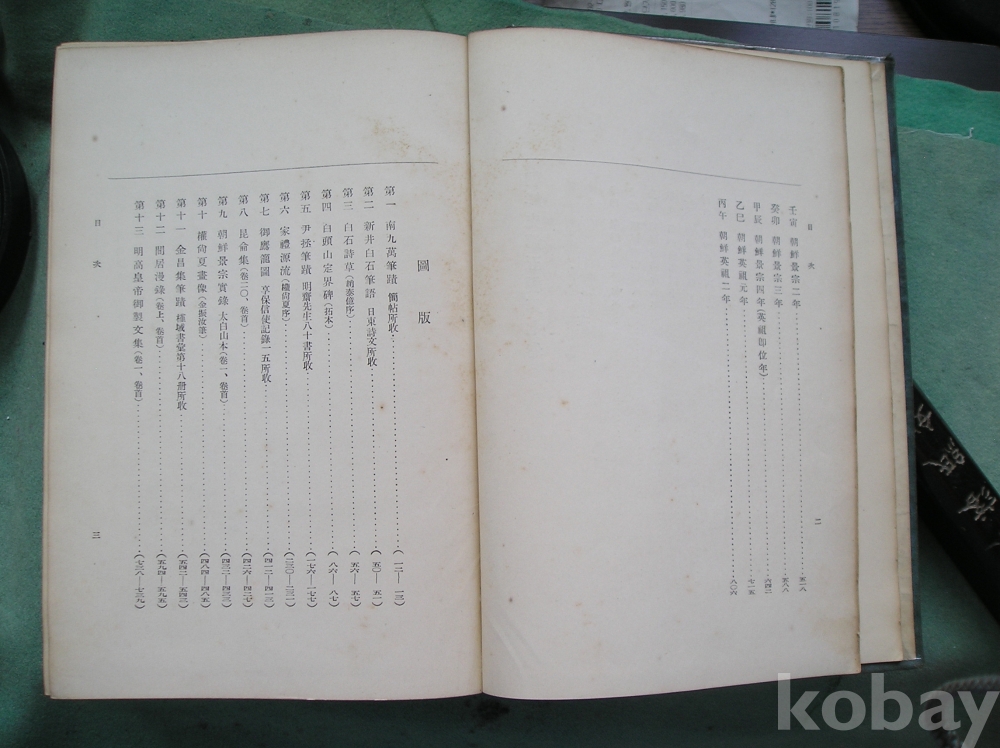 目次
壬寅 朝鮮景宗二年……五一八
癸卯 朝鮮景宗三年……五八八
甲辰 朝鮮景宗四年(英祖即位年)……六四二
乙巳 朝鮮英祖元年……七一五
丙午 朝鮮英祖二年……八〇六
二
圖版
第一 南九萬筆蹟 簡帖所收……(一二—一三)
第二 新井白石筆語 日東詩文所收……(五〇—五一)
第三 白石詩草(趙泰億序)……(五六—五七)
第四 白頭山定界碑(拓本)……(八六—八七)
第五 尹拯筆蹟 明齋先生八十書所收……(一七六—一七七)
第六 家禮源流(權尙夏序)……(二三〇—二三一)
第七 御鷹籠圖 享保信使記錄一五所收……(四一二—四一三)
第八 昆侖集(卷二〇、卷首)……(四二六—四二七)
第九 朝鮮景宗實錄 太白山本(卷一、卷首)……(四三二—四三三)
第十 權尙夏畫像(金振汝筆)……(四八四—四八五)
第十一 金昌集筆蹟 槿域書彙第十八冊所收……(五四二—五四三)
第十二 閒居漫錄(卷上、卷首)……(五九四—五九五)
第十三 明高皇帝御製文集(卷一、卷首)……(七三八—七三九)
目次
三
kobay